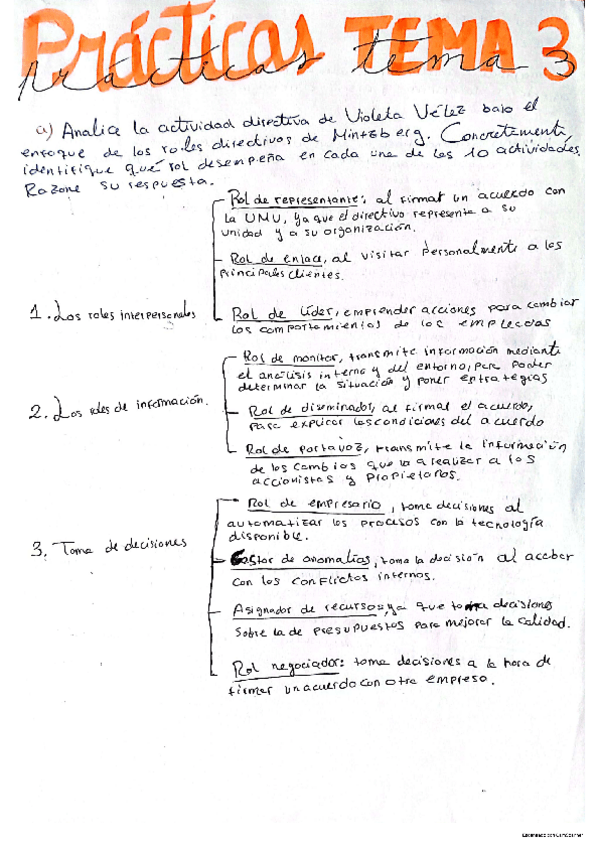 Prácticas TEMA 3
prácticas tema 3
a) Analice la actividad directiva de Violeta Vélez bajo el
enfoque de los roles directivos de Mintzberg. Concretamente,
identifique qué rol desempeña en cada una de las 10 actividades.
Razone su respuesta.
Rol de representante: al firmar un acuerdo con
la UMU, ya que el directivo representa a su
unidad y a su organización.
Rol de enlace, al visitar personalmente a los
principales clientes.
1. Los roles interpersonales
Rol de líder, emprender acciones para cambiar
los comportamientos de los empleados
Rol de monitor, transmite información mediante
el análisis interno y del entorno, para poder
determinar la situación y poner estrategias
2. Los roles de información.
Rol de diseminador, al firmal el acuerdo,
para explicar las condiciones del acuerdo
Rol de portavoz, transmite la información
de los cambios que va a realizar a los
accionistas y propietarios.
Rol de empresario, toma decisiones al
automatizar los procesos con la tecnología
disponible.
3. Toma de decisiones
Gestor de anomalías, toma la decisión al acabar
con los conflictos internos.
Asignador de recursos: ya que toma decisiones
sobre la de presupuestos para mejorar la calidad.
Rol negociador: toma decisiones a la hora de
firmar un acuerdo con otra empresa.